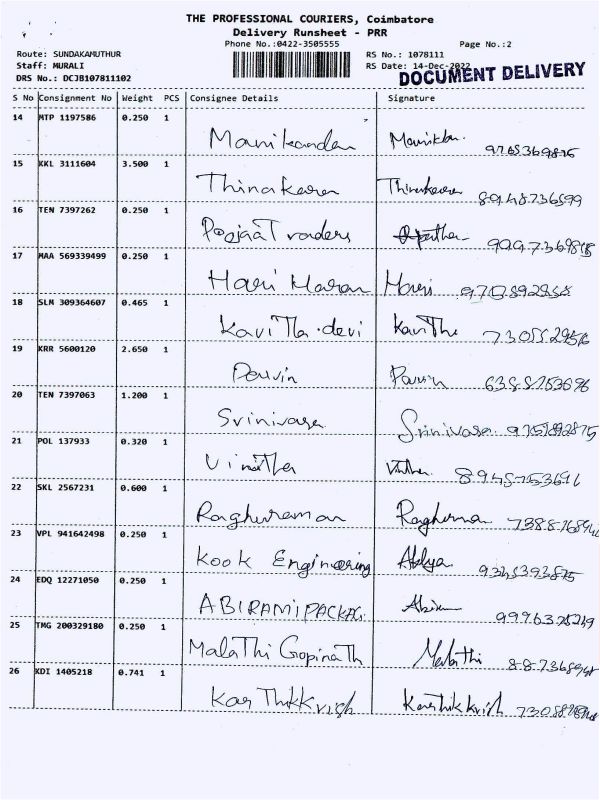 THE PROFESSIONAL COURIERS, Coimbatore
Delivery Runsheet - PRR
Phone No.:0422-3505555 Page No.:2
Route: SUNDAKAMUTHUR RS No.: 1078111
Staff: MURALI RS Date: 14-Dec-2022
DRS No.: DCJB107811102 DOCUMENT DELIVERY
S No Consignment No Weight PCS Consignee Details Signature
14 MTP 1197586 0.250 1
Manikandan
15 KKL 3111604 3.500 1
Thinakaran 8948736599
16 TEN 7397262 0.250 1
Poojaa Traders
17 MAA 569339499 0.250 1
Hari Haran Hari
18 SLM 309364607 0.465 1
Kavitha.devi
19 KRR 5600120 2.650 1
20 TEN 7397063 1.200 1
Srinivasa Srinivasa
21 POL 137933 0.320 1
Vinitha
22 SKL 2567231 0.600 1
Raghuraman
23 VPL 941642498 0.250 1
Kook Engineering
24 EDQ 12271050 0.250 1
ABIRAMI
25 TMG 200329180 0.250 1
Malathi Gopinath Malathi
26 KDI 1405218 0.741 1
Karthikkrish Karthikkrish